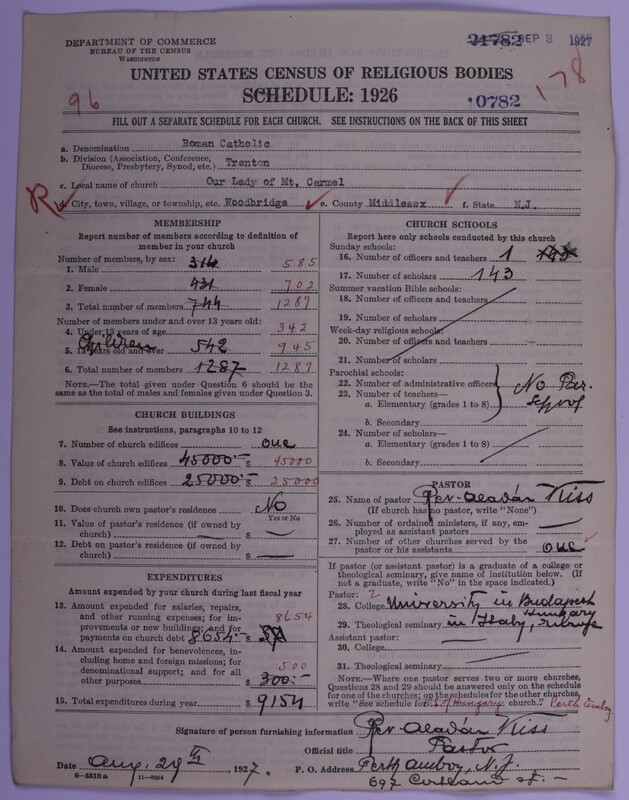 DEPARTMENT OF COMMERCE
BUREAU OF THE CENSUS
WASHINGTON
21782 SEP 3 1927
UNITED STATES CENSUS OF RELIGIOUS BODIES
SCHEDULE: 1926
96
10782
178
FILL OUT A SEPARATE SCHEDULE FOR EACH CHURCH. SEE INSTRUCTIONS ON THE BACK OF THIS SHEET
a. Denomination Roman Catholic
b. Division (Association, Conference, Diocese, Presbytery, Synod, etc.) Trenton
c. Local name of church Our Lady of Mt. Carmel
R d. City, town, village, or township, etc. Woodbridge e. County Middlesex f. State N.J.
MEMBERSHIP
Report number of members according to definition of
member in your church
Number of members, by sex:
1. Male 314 585
2. Female 431 702
3. Total number of members 744 1287
Number of members under and over 13 years old:
4. Under 13 years of age 342
Children
5. 13 years old and over 542 945
6. Total number of members 1287 1287
NOTE.—The total given under Question 6 should be the
same as the total of males and females given under Question 3.
CHURCH BUILDINGS
See instructions, paragraphs 10 to 12
7. Number of church edifices one
8. Value of church edifices 45000.- $ 45000
9. Debt on church edifices 25000.- $ 25000
10. Does church own pastor's residence No
Yes or No
11. Value of pastor's residence (if owned by
church) $
12. Debt on pastor's residence (if owned by
church) $
EXPENDITURES
Amount expended by church during last fiscal year
13. Amount expended for salaries, repairs,
and other running expenses; for im-
provements or new buildings; and for
payments on church debt 8654.- $ 8654
14. Amount expended for benevolences, in-
cluding home and foreign missions; for
denominational support; and for all
other purposes $ 300.- 500
15. Total expenditures during year $ 9154
CHURCH SCHOOLS
Report here only schools conducted by this church
Sunday schools:
16. Number of officers and teachers 1 143
17. Number of scholars 143
Summer vacation Bible schools:
18. Number of officers and teachers
19. Number of scholars
Week-day religious schools:
20. Number of officers and teachers
21. Number of scholars
Parochial schools:
22. Number of administrative officers
23. Number of teachers—
a. Elementary (grades 1 to 8)
No Par. School
b. Secondary
24. Number of scholars—
a. Elementary (grades 1 to 8)
b. Secondary
PASTOR
25. Name of pastor Rev. Aladár Kiss
(If church has no pastor, write "None")
26. Number of ordained ministers, if any, em-
ployed as assistant pastors
27. Number of other churches served by the
pastor or his assistants one
If pastor (or assistant pastor) is a graduate of a college or
theological seminary, give name of institution below. (If
not a graduate, write "No" in the space indicated.)
Pastor: 2
28. College University in Budapest Hungary
29. Theological seminary in Italy,
Assistant pastor:
30. College
31. Theological seminary
NOTE.—Where one pastor serves two or more churches,
Questions 28 and 29 should be answered only on the schedule
for one of the churches; on the schedules for the other churches,
write "See schedule for of Hungary church." Perth Amboy
Signature of person furnishing information Rev. Aladár Kiss
Official title Pastor
Date Aug. 29 th, 1927. P. O. Address Perth Amboy, N.J.
697 Cortland st.-
8-5518a 11-9054